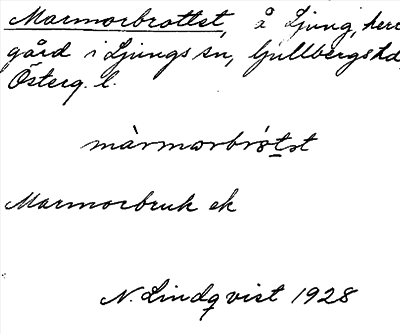 Marmorbrottet, å Ljung, herr
gård i Ljungs sn, Gullbergs hd,
Österg. l.
màrmωrbró̀tst
Marmorbruk ek
N. Lindqvist 1928